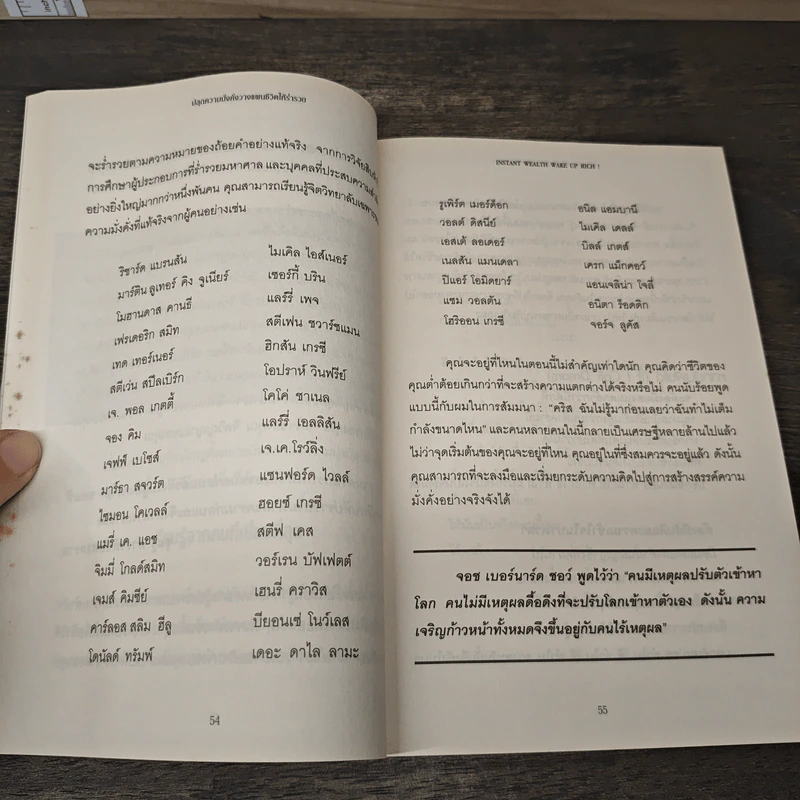 ปลุกความมั่งคั่งวางแผนชีวิตให้ร่ำรวย
จะร่ำรวยตามความหมายของถ้อยคำอย่างแท้จริง จากการวิจัย
การศึกษาผู้ประกอบการที่ร่ำรวยมหาศาล และบุคคลที่ประสบความ
อย่างยิ่งใหญ่มากกว่าหนึ่งพันคน คุณสามารถเรียนรู้จิตวิทยาลับเฉพาะ
ความมั่งคั่งที่แท้จริงจากผู้คนอย่างเช่น
ริชาร์ด แบรนสัน
มาร์ติน ลูเทอร์ คิง จูเนียร์
โมฮานดาส คานธี
เฟรเดอริก สมิท
เทด เทอร์เนอร์
สตีเว่น สปีลเบิร์ก
เจ. พอล เกตตี้
จอง คิม
เจฟฟ์ เบโซส์
มาร์ธา สจวร์ต
ไซมอน โคเวลล์
แมรี่ เค. แอช
จิมมี่ โกลด์สมิท
เจมส์ คิมซีย์
คาร์ลอส สลิม ฮีลู
โดนัลด์ ทรัมพ์
ไมเคิล ไอส์เนอร์
เซอร์กี้ บริน
แลร์รี่ เพจ
สตีเฟน ชวาร์ซแมน
ฮิกสัน เกรซี
โอปราห์ วินฟรีย์
โคโค่ ชาเนล
แลร์รี่ เอลลิสัน
เจ.เค.โรว์ลิ่ง
แซนฟอร์ด ไวลล์
ฮอยซ์ เกรซี
สตีฟ เคส
วอร์เรน บัฟเฟตต์
เฮนรี่ คราวิส
บียอนเซ่ โนว์เลส
เดอะ ดาไล ลามะ
54
INSTANT WEALTH WAKE UP RICH !
รูเพิร์ต เมอร์ด็อก
วอลต์ ดิสนีย์
เอสเต้ ลอเดอร์
เนลสัน แมนเดลา
ปิแอร์ โอมิดยาร์
แซม วอลตัน
โฮริออน เกรซี
อนิล แอมบานี
ไมเคิล เดลล์
บิลล์ เกตส์
เครก แม็กคอว์
แอนเจลิน่า โจลี่
อนิตา ร็อดดิก
จอร์จ ลูคัส
คุณจะอยู่ที่ไหนในตอนนี้ไม่สำคัญเท่าใดนัก คุณคิดว่าชีวิตของ
คุณต่ำต้อยเกินกว่าที่จะสร้างความแตกต่างได้จริงหรือไม่ คนนับร้อยพูด
แบบนี้กับผมในการสัมมนา : “คริส ฉันไม่รู้มาก่อนเลยว่าฉันทำไม่เต็ม
กำลังขนาดไหน” และคนหลายคนในนี้กลายเป็นเศรษฐีหลายล้านไปแล้ว
ไม่ว่าจุดเริ่มต้นของคุณจะอยู่ที่ไหน คุณอยู่ในที่ซึ่งสมควรจะอยู่แล้ว ดังนั้น
คุณสามารถที่จะลงมือและเริ่มยกระดับความคิดไปสู่การสร้างสรรค์ความ
มั่งคั่งอย่างจริงจังได้
จอช เบอร์นาร์ด ชอว์ พูดไว้ว่า “คนมีเหตุผลปรับตัวเข้าหา
โลก คนไม่มีเหตุผลดื้อดึงที่จะปรับโลกเข้าหาตัวเอง ดังนั้น ความ
เจริญก้าวหน้าทั้งหมดจึงขึ้นอยู่กับคนไร้เหตุผล”
55